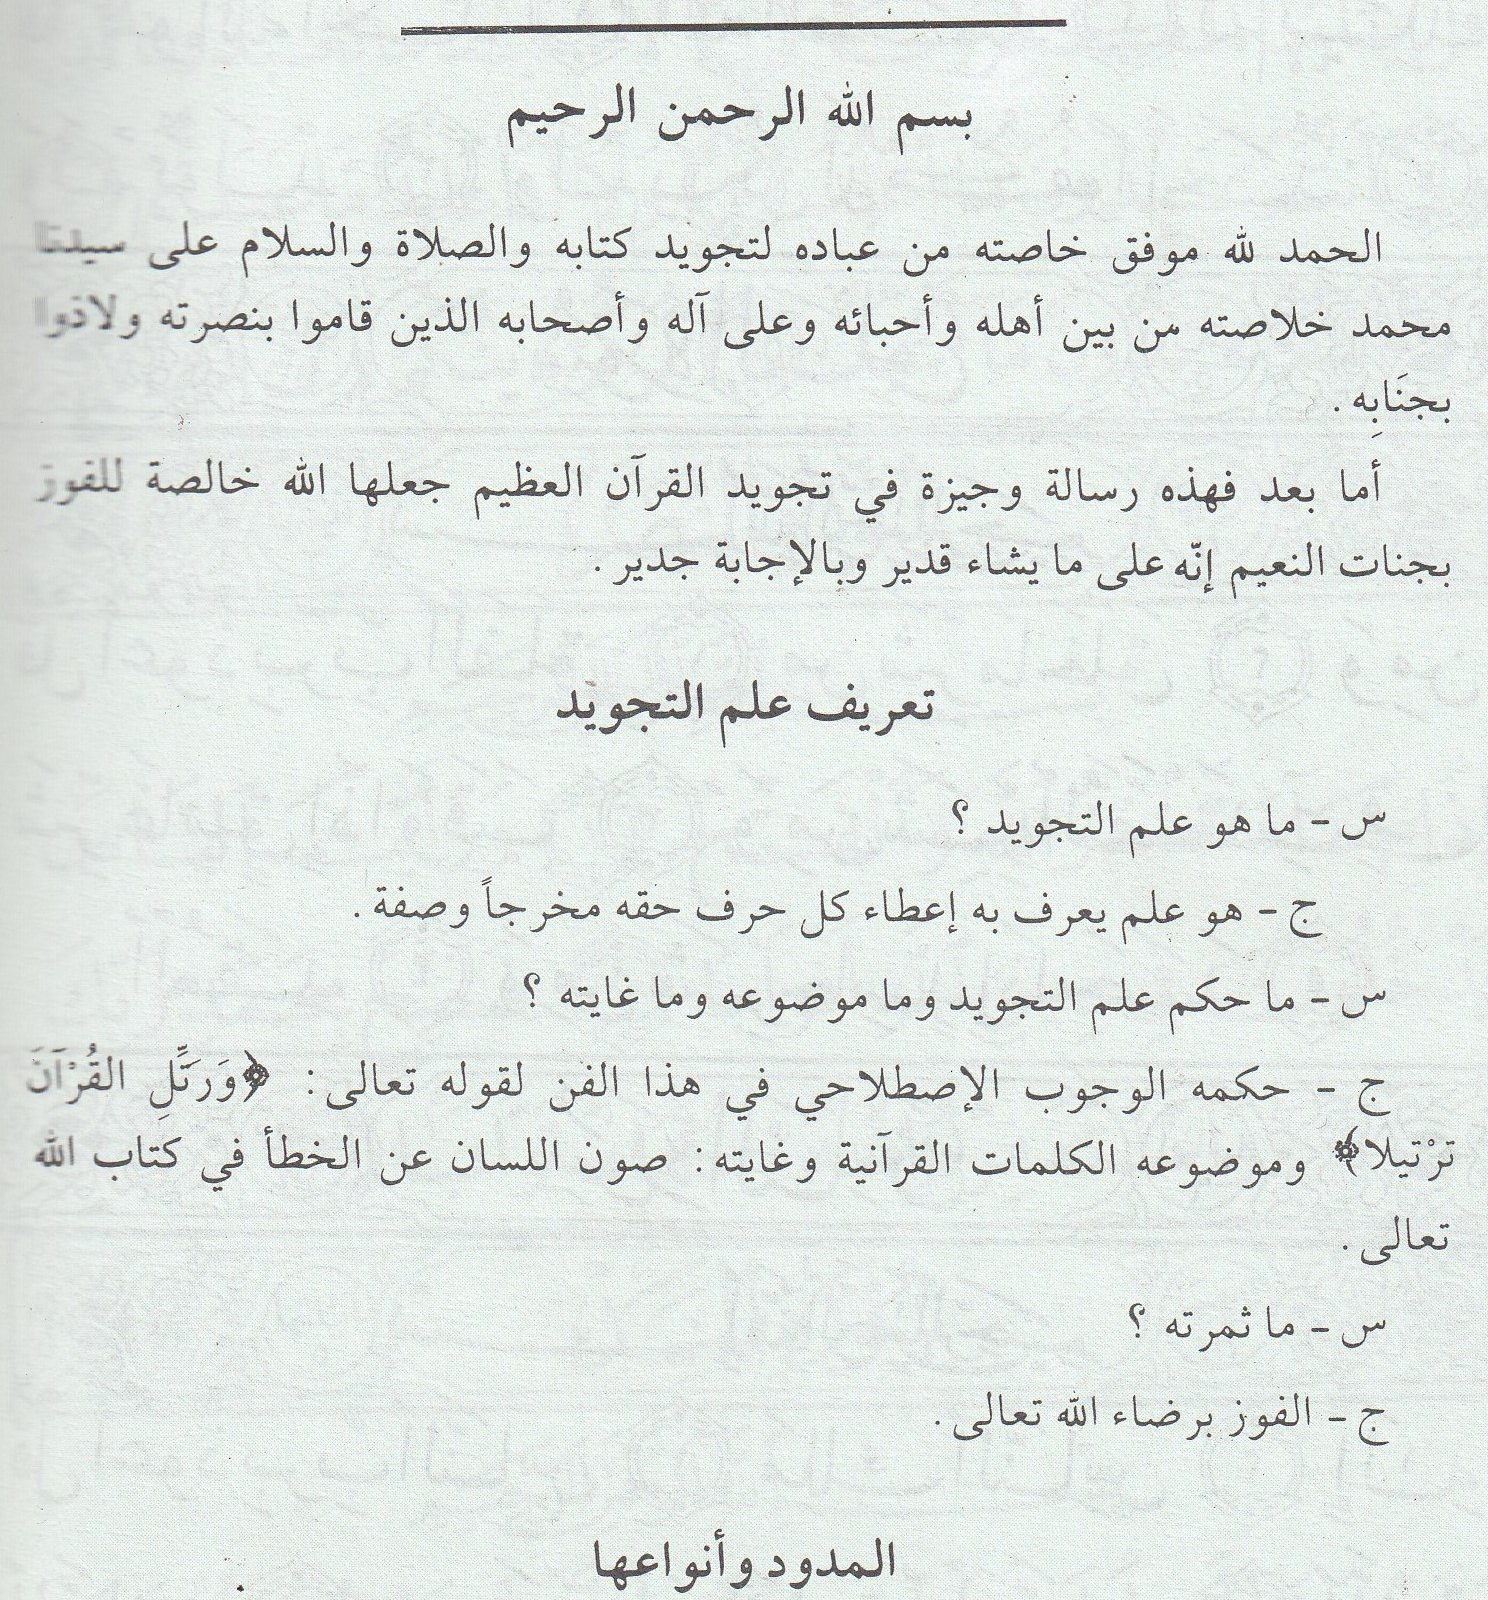 بسم الله الرحمن الرحيم
الحمد لله موفق خاصته من عباده لتجويد كتابه والصلاة والسلام على سيدنا
محمد خلاصته من بين أهله وأحبائه وعلى آله وأصحابه الذين قاموا بنصرته ولاذوا
بجنَابِه .
أما بعد فهذه رسالة وجيزة في تجويد القرآن العظيم جعلها الله خالصة للفوز
بجنات النعيم إنّه على ما يشاء قدير وبالإجابة جدير .
تعريف علم التجويد
س - ما هو علم التجويد ؟
ج - هو علم يعرف به إعطاء كل حرف حقه مخرجاً وصفة .
س - ما حكم علم التجويد وما موضوعه وما غايته ؟
ج - حكمه الوجوب الإصطلاحي في هذا الفن لقوله تعالى : ﴿وَرَتِّلِ القُرْآنَ
ترْتيلا﴾ وموضوعه الكلمات القرآنية وغايته : صون اللسان عن الخطأ في كتاب الله
تعالى .
س - ما ثمرته ؟
ج - الفوز برضاء الله تعالى .
المدود وأنواعها